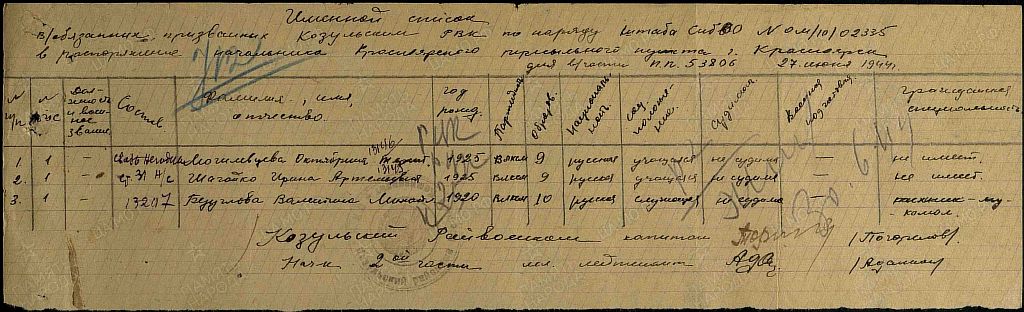 Именной список
в/обязанных призванных Козульским РВК по наряду Штаба СибВО N ом/10/02335
в распоряжение начальника Красноярского пункта г. Красноярск
для в/части п.п. 53806 27 июня 1944г.
N п/п N ВУС Должность и военное звание Состав Фамилия, имя, отчество. год рожд. Партийная Образов. Национальность соц положение. Судимость Военная подготовка Гражданская специальность
1. 1 — Могилевцева Октябрина 13146 1925 Влксм 9 русская учащаяся не судима — не имеет.
2. 1 — ср. 31 н/с Шагойко Ирина Артемовна 13143 1925 Влксм 9 русская учащаяся не судима — не имеет.
3. 1 — 13207 Круглова Валентина Михайл 1920 Влксм 10 русская служащая не судима — техник - мукомол.
Козульский Райвоенком капитан /Погорилов/.
Нач 2ой части мл. лейтенант /Адамов/